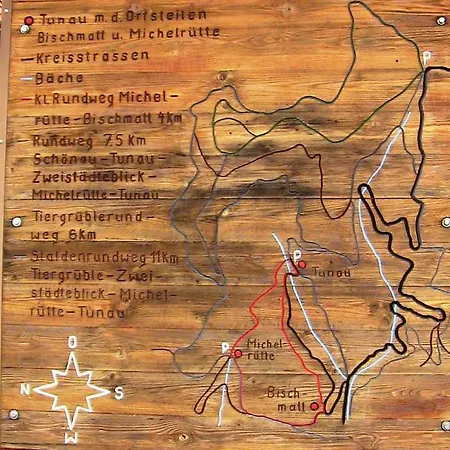 Tunau m.d. Ortsteilen
Bischmatt u. Michelrütte
Kreisstrassen
Bäche
Kl. Rundweg Michel-
rütte-Bischmatt 4km
Rundweg 7.5 Km
Schönau-Tunau-
Zweistädteblick-
Michelrütte-Tunau
Tiergrüblerund-
weg 6km
Staldenrundweg 11km
Tiergrüble-Zwei-
städteblick-Michel-
rütte-Tunau
P
P
Tunau
P
Michel-
rütte
Bisch-
matt
O
N
S
W